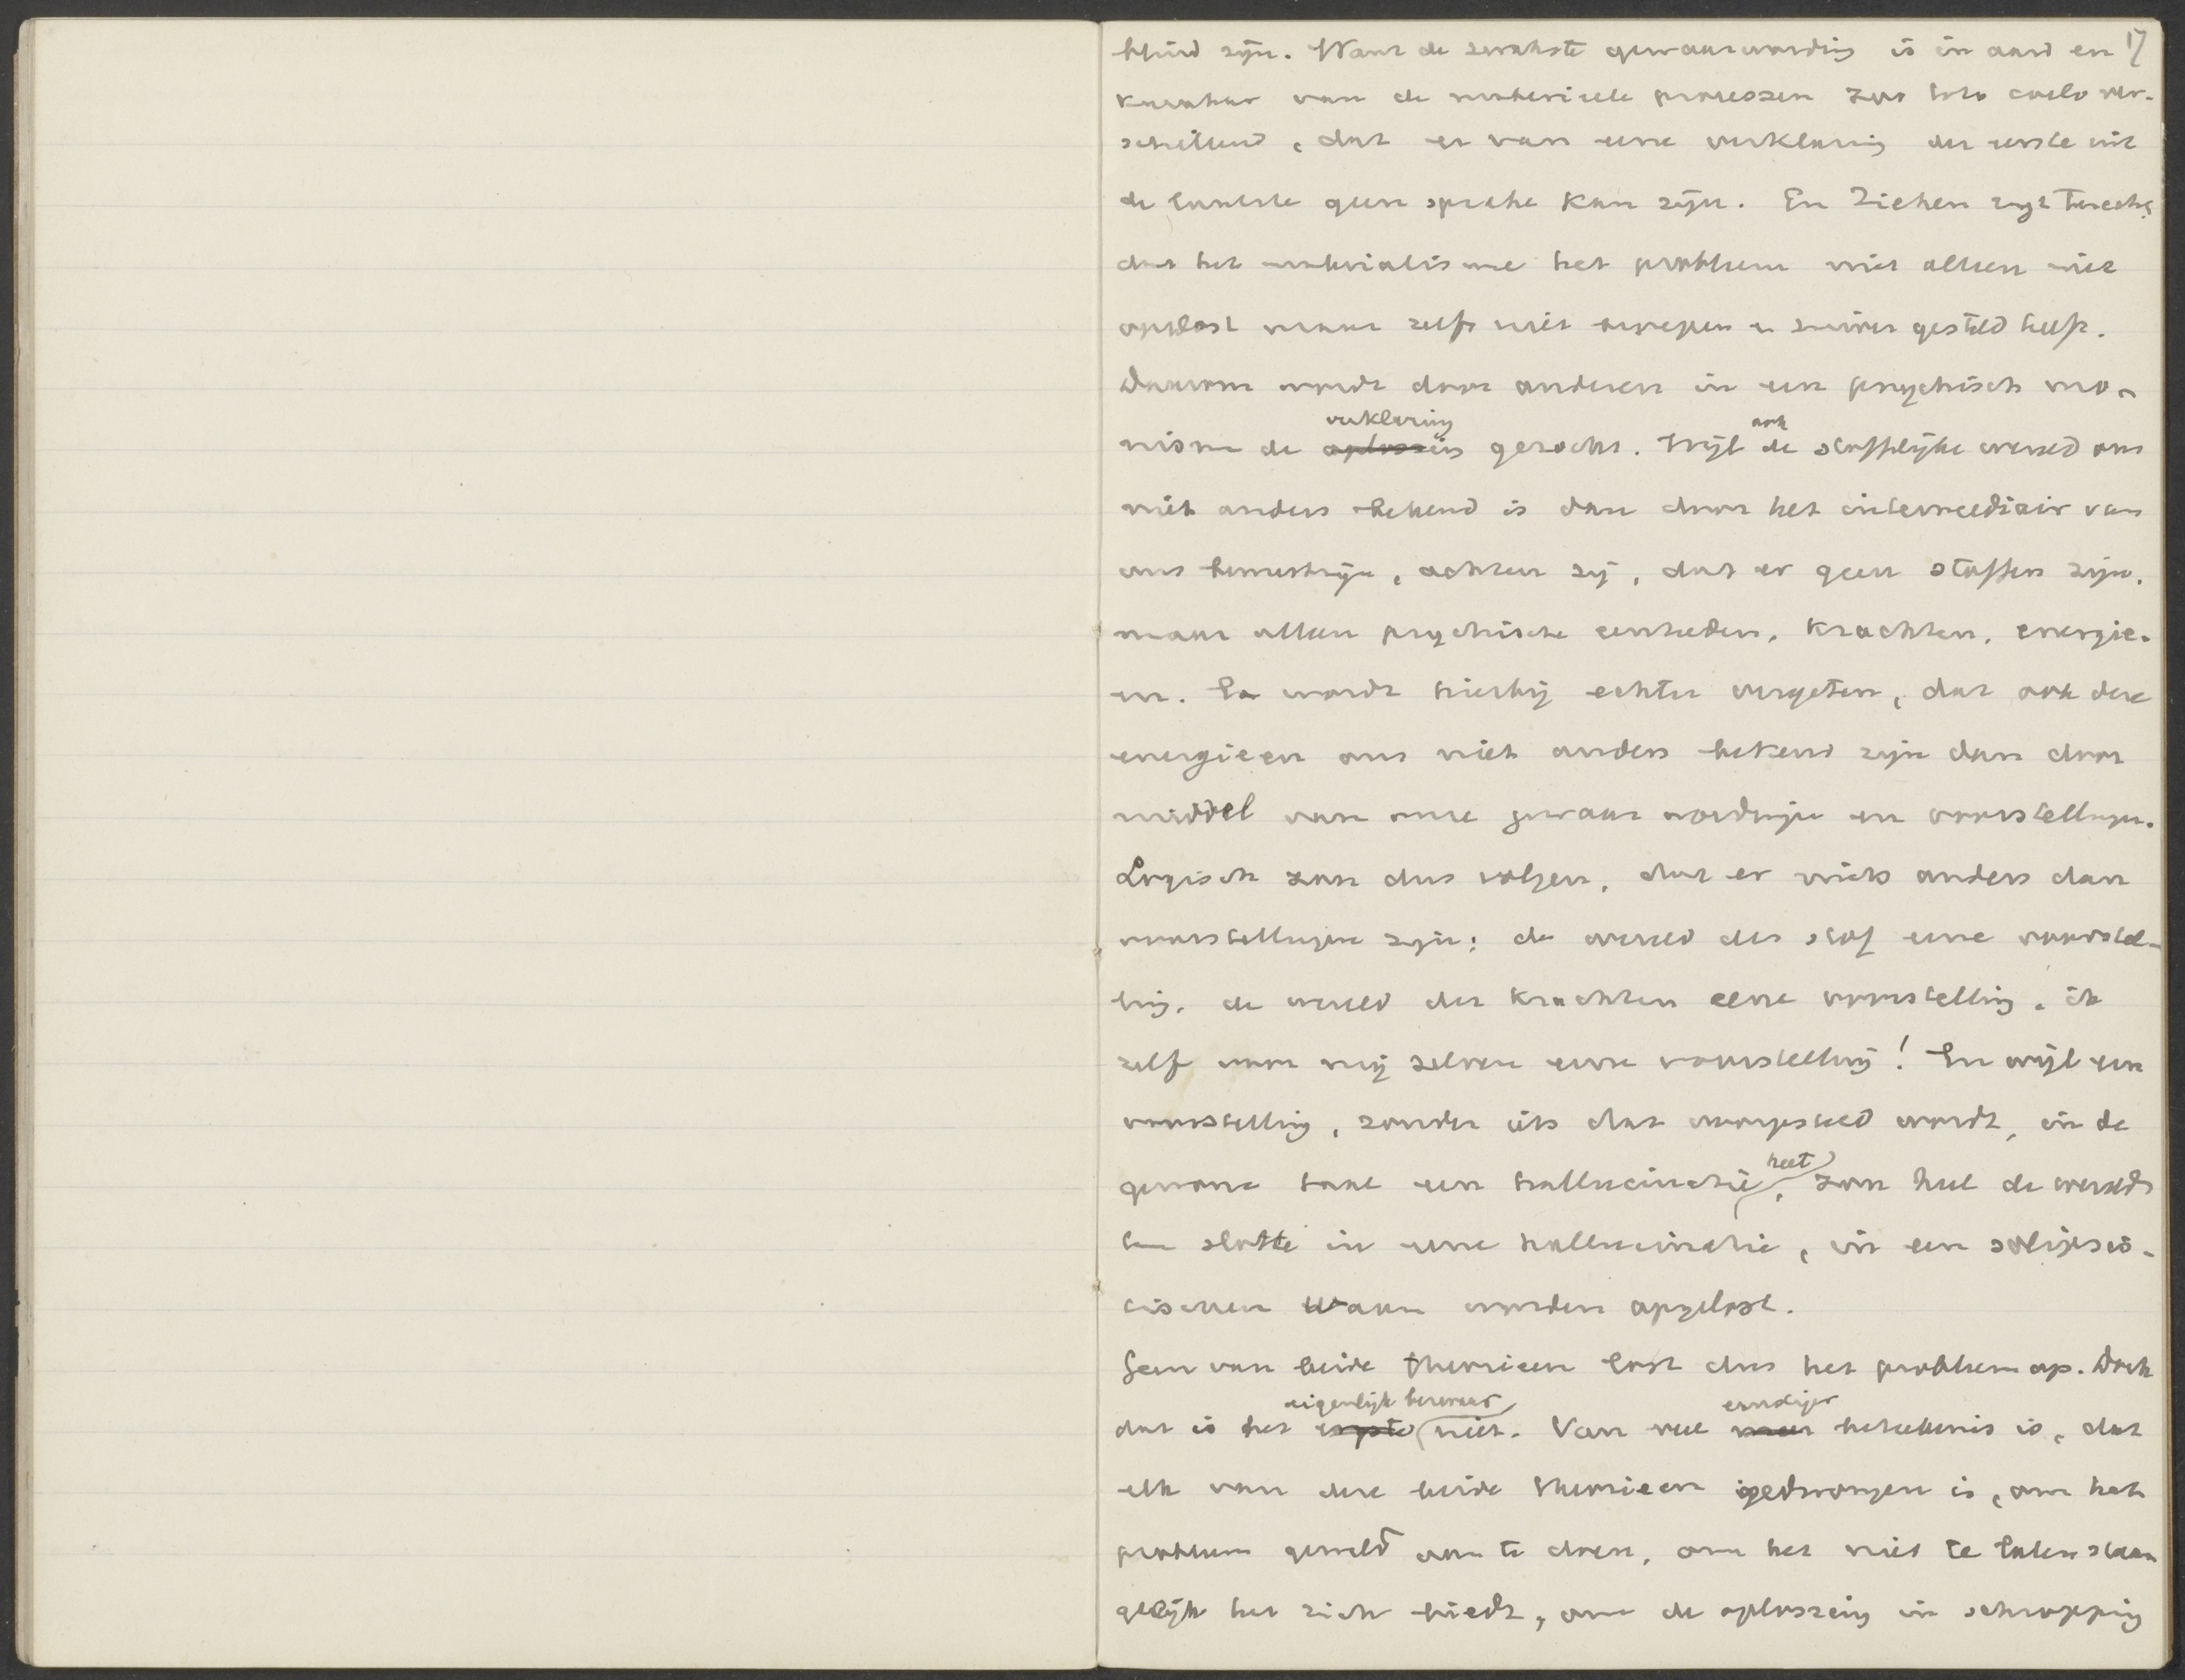 17
blind zijn. Want de zwakste gewaarwording is in aard en
karakter van de materieele processen zoo toto coelo ver-
schillend, dat er van eene verklaring der eerste uit
de laatste geen sprake kan zijn. En Ziehen zegt terecht,
dat het materialisme het probleem niet alleen niet
oplost maar zelfs niet begrepen en zuiver gesteld heeft.
Daarom wordt door anderen in een psychisch mo-
verklaring ook
nisme de oplossing gezocht. Wijl de stoffelijke wereld ons
niet anders bekend is dan door het intermediair van
ons bewustzijn, achten zij, dat er geen stoffen zijn,
maar alleen psychische eenheden, krachten, energie-
en. Er wordt hierbij echter vergeten, dat ook deze
energieen ons niet anders bekend zijn dan door
middel van onze gewaarwordingen en voorstellingen.
Logisch zou dus volgen, dat er niets anders dan
voorstellingen zijn; de wereld der stof eene voorstel-
ling, de wereld der krachten eene voorstelling, ik
zelf voor mij zelven eene voorstelling! En wijl een
voorstelling, zonder iets dat voorgesteld wordt, in de
heet
gewone taal een hallucinatie, zou heel de wereld
ten slotte in eene hallucinatie, in een solipsis-
tischen waan worden opgelost.
Geen van beide theorieen lost dus het probleem op. Doch
eigenlijk bezwaar ernstiger
dat is het ergste niet. Van veel meer beteekenis is, dat
elk van deze beide theorieen gedwongen is, om het
probleem geweld aan te doen, om het niet te laten staan
gelijk het zich biedt, om de oplossing in schrapping